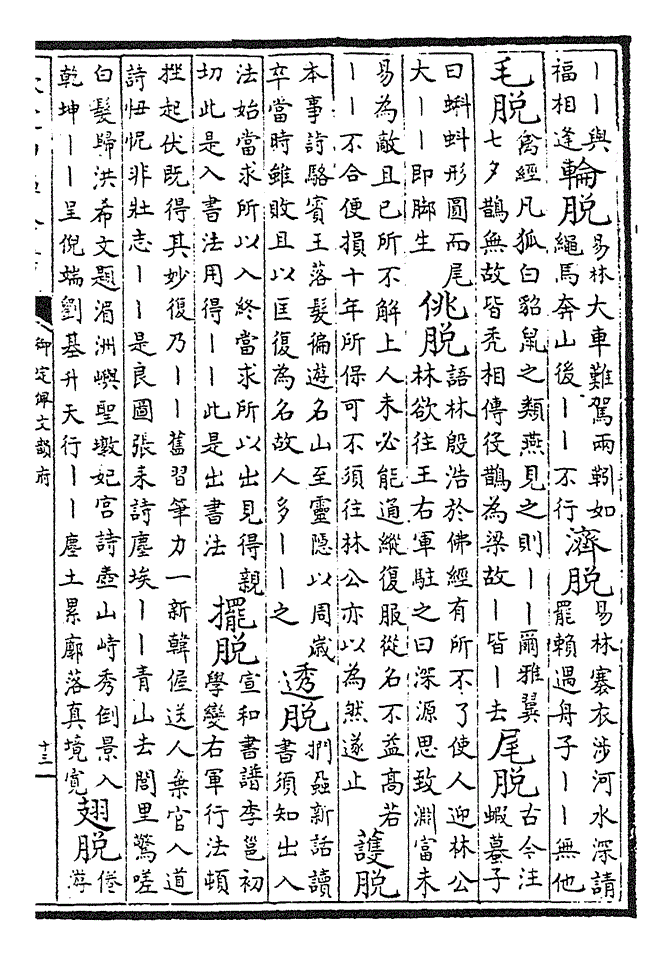 ｜｜與福相逢輪脫易林大車難駕兩靷如繩馬奔山後｜｜不行濟脫易林褰衣涉河水深請罷賴遇舟子｜｜無他
毛脫禽經凡狐白貂鼠之類燕見之則｜｜爾雅翼七夕鵲無故皆禿相傳役鵲為梁故｜皆｜去尾脫古今注蝦蟇子
曰蝌蚪形圓而尾大｜｜即脚生佻脫語林殷浩於佛經有所不了使人迎林公林欲往王右軍駐之曰深源思致淵富未
易為敵且已所不解上人未必能通縱復服從名不益高若｜｜不合便損十年所保可不須往林公亦以為然遂止護脫
本事詩駱賓王落髮徧遊名山至靈隱以周歲卒當時雖敗且以匡復為名故人多｜｜之透脫捫蝨新話讀書須知出入
法始當求所以入終當求所以出見得親切此是入書法用得｜｜此是出書法擺脫宣和書譜李邕初學變右軍行法頓
挫起伏既得其妙復乃｜｜舊習筆力一新韓偓送人棄官入道詩忸怩非壯志｜｜是良圖張耒詩塵埃｜｜青山去閭里驚嗟
白髮歸洪希文題湄洲嶼聖墩妃宮詩壺山峙秀倒景入乾坤｜｜呈倪端劉基升天行｜｜塵土累廓落真境寬翅脫倦游
御定佩文韻府
十三